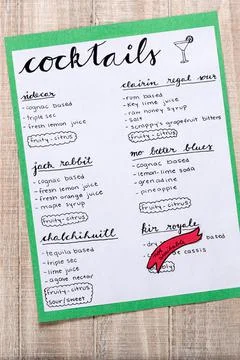 cocktails
sidecar
- cognac based
- triple sec
- fresh lemon juice
fruity-citrus
jack rabbit
- cognac based
- fresh lemon juice
- fresh orange juice
- maple syrup
fruity-citrus
chalchihuitl
- tequila based
- triple sec
- lime juice
- agave nectar
fruity-citrus
sour/sweet
clairin regal sour
- rum based
- key lime juice
- raw honey syrup
- salt
- scrappy's grapefruit bitters
fruity-citrus
mo better blues
- cognac based
- lemon-lime soda
- grenadine
- pineapple
fruity-citrus
kir royale
- dry based
cassis
bly